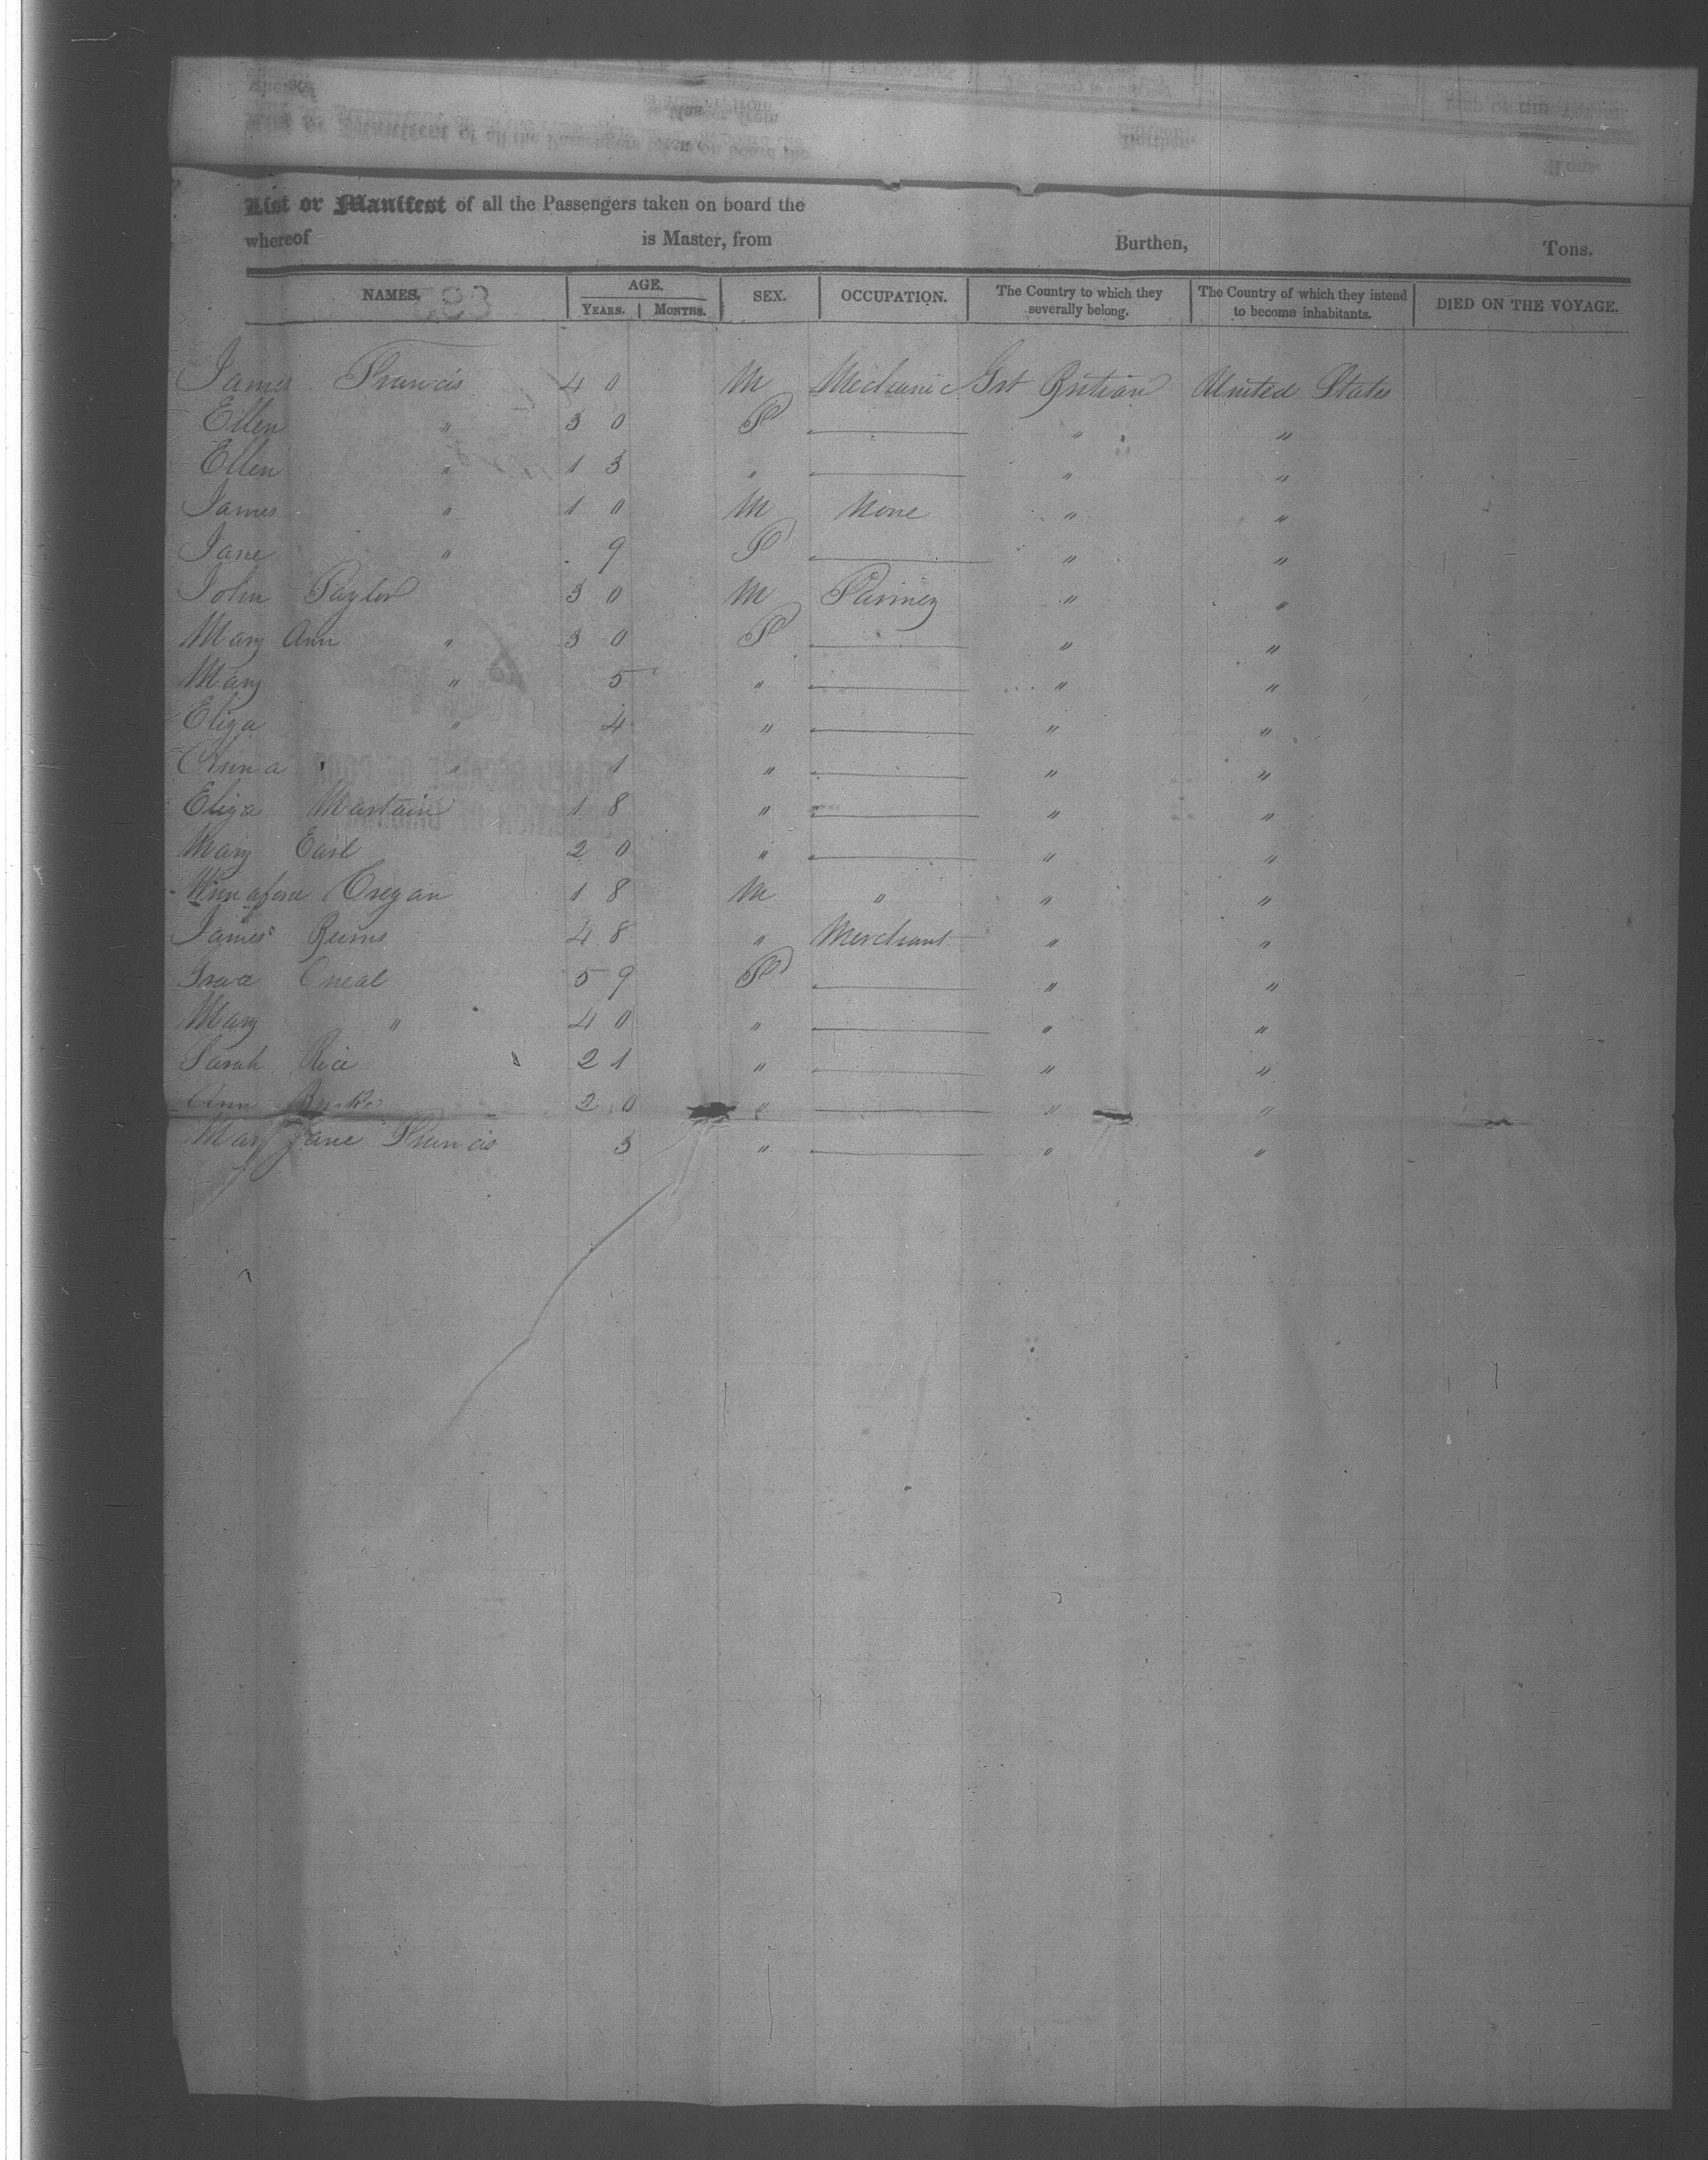 List or Manifest of all the Passengers taken on board the
whereof is Master, from Burthen, Tons.
NAMES. AGE. YEARS. MONTHS. SEX. OCCUPATION. The Country to which they severally belong. The Country of which they intend to become inhabitants. DIED ON THE VOYAGE.
James Francis 40 M Mechanic Grt Britian United States
Ellen " 30 F " "
Ellen " 13 " " "
James " 10 M None " "
Jane " 9 F " "
John Taylor 30 M Farmer " "
Mary Ann " 30 F " "
Mary " 5 " " "
Eliza " 4 " " "
Anna " 1 " " "
Eliza Martain 18 " " "
Mary Earl 20 " " "
Oregan 18 M " " "
James 48 " Merchant " "
Oneal 59 F " "
Mary " 40 " " "
Sarah Rice 21 " " "
Ann 20 " " "
Mary Jane Francis 3 " " "